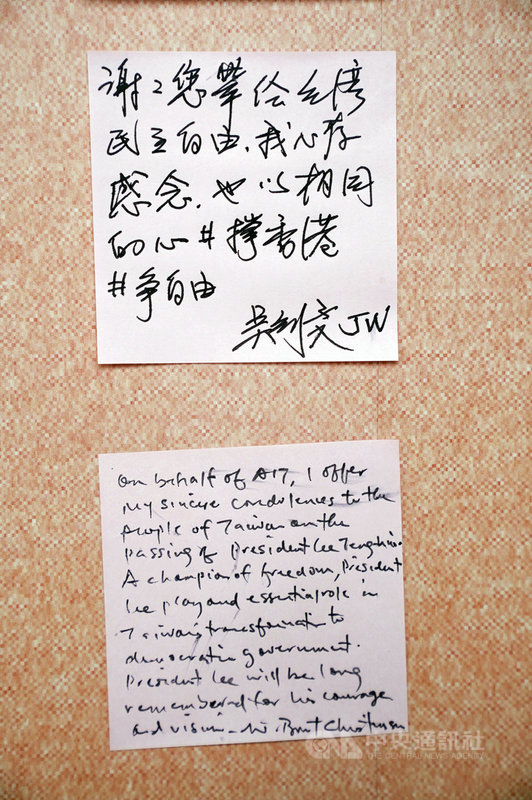 谢〻您给台湾
民主自由,我心存
感念,也以相同
的心#撐香港
#争自由
吴钊燮 JW
On behalf of AIT, I offer
my sincere condolences to the
people of Taiwan on the
passing of President Lee Tenghui.
A champion of freedom, President
Lee play and essential role in
Taiwan's transformation to
democratic government.
President Lee will be long
remembered for his courage
and vision - W. Brent Christensen
中央通訊社
THE CENTRAL NEWS AGENCY